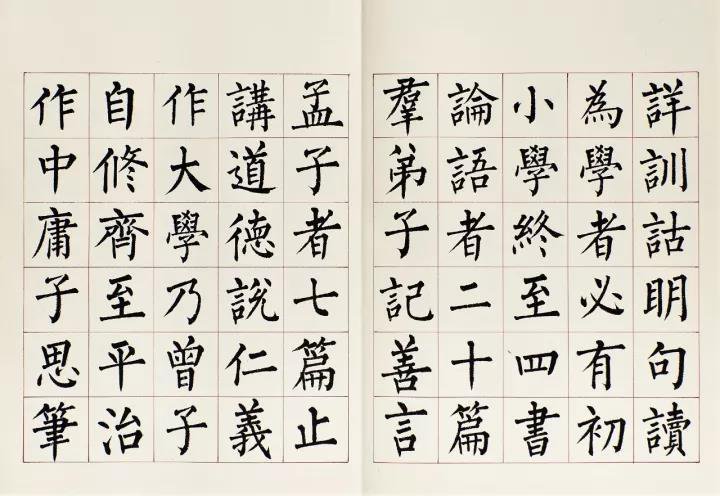 詳訓詁明句讀
為學者必有初
小學終至四書
論語者二十篇
羣弟子記善言
孟子者七篇止
講道德說仁義
作大學乃曾子
自修齊至平治
作中庸子思筆